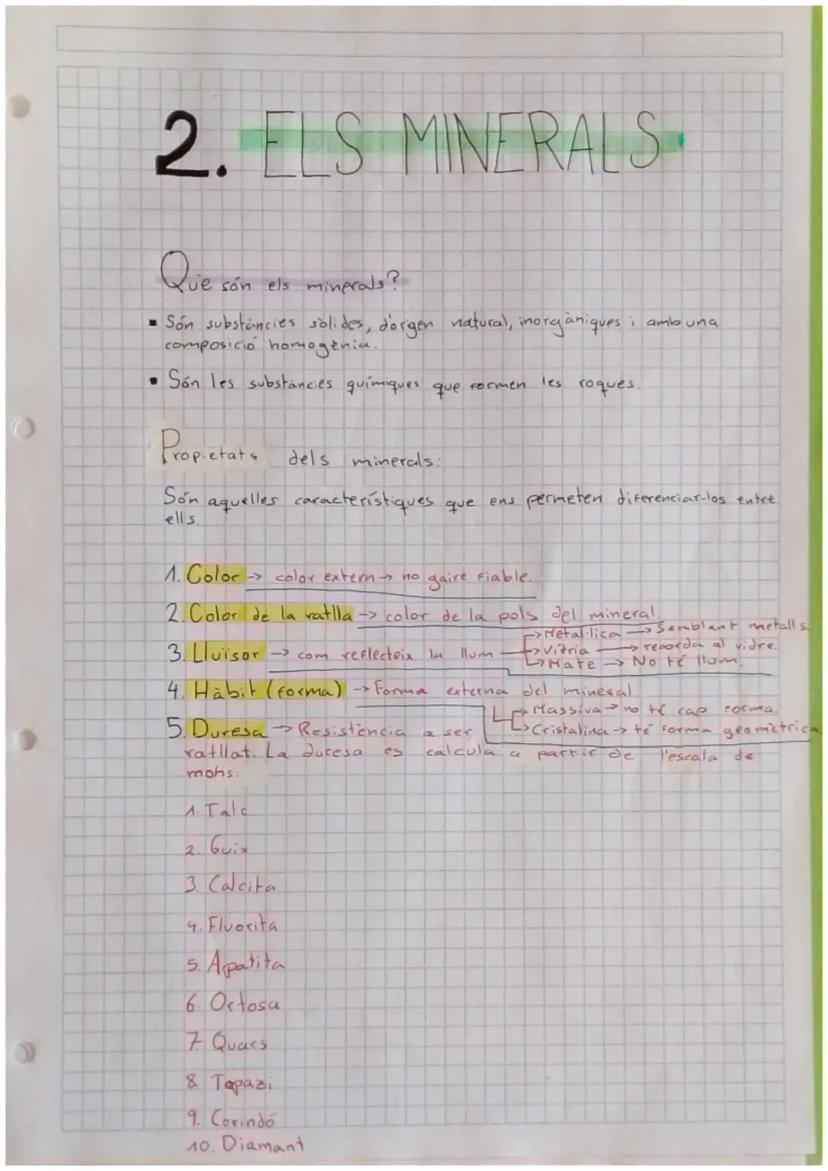 2. ELS MINERALS
Que són els minerals?
▪ Són substàncies sòlides, d'orgen natural, inorgàniques i amb una
composició homogènia.
• Són les substàncies químiques que formen les roques.
Propietats dels minerals:
Són aquelles característiques que ens permeten diferenciar-los entre
ells.
1. Color → color extern → no gaire fiable.
2. Color de la ratlla → color de la pols del mineral.
3. Lluisor → com reflecteix la llum
→ Metal·lica → Semblant metalls.
→ Vitria → recorda al vidre.
→ Mate → No té llum.
4. Hàbit (forma) → Forma externa del mineral
→ Massiva → no té cap forma.
→ Cristalina → té forma geomètrica.
5. Duresa → Resistència a ser
ratllat. La duresa es calcula a partir de l'escala de
mohs:
1. Talc
2. Guix
3. Calcita
4. Fluorita
5. Apatita
6. Octosa
7. Quars
8. Topazi
9. Corindó
10. Diamant